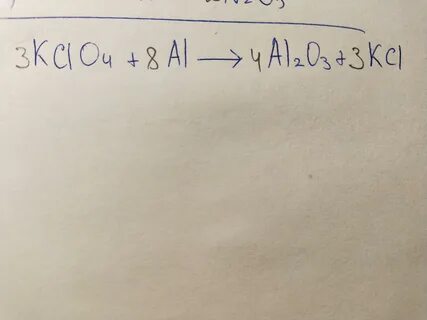 3KClO₄ + 8Al → 4Al₂O₃ + 3KCl